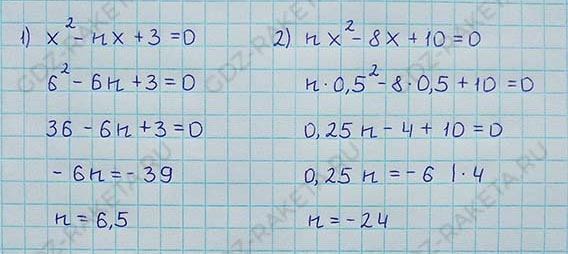 1) x² - nx + 3 = 0
6² - 6n + 3 = 0
36 - 6n + 3 = 0
- 6n = - 39
n = 6,5
2) nx² - 8x + 10 = 0
n · 0,5² - 8 · 0,5 + 10 = 0
0,25n - 4 + 10 = 0
0,25 n = - 6 | · 4
n = - 24
GDZ-RAKETA.RU